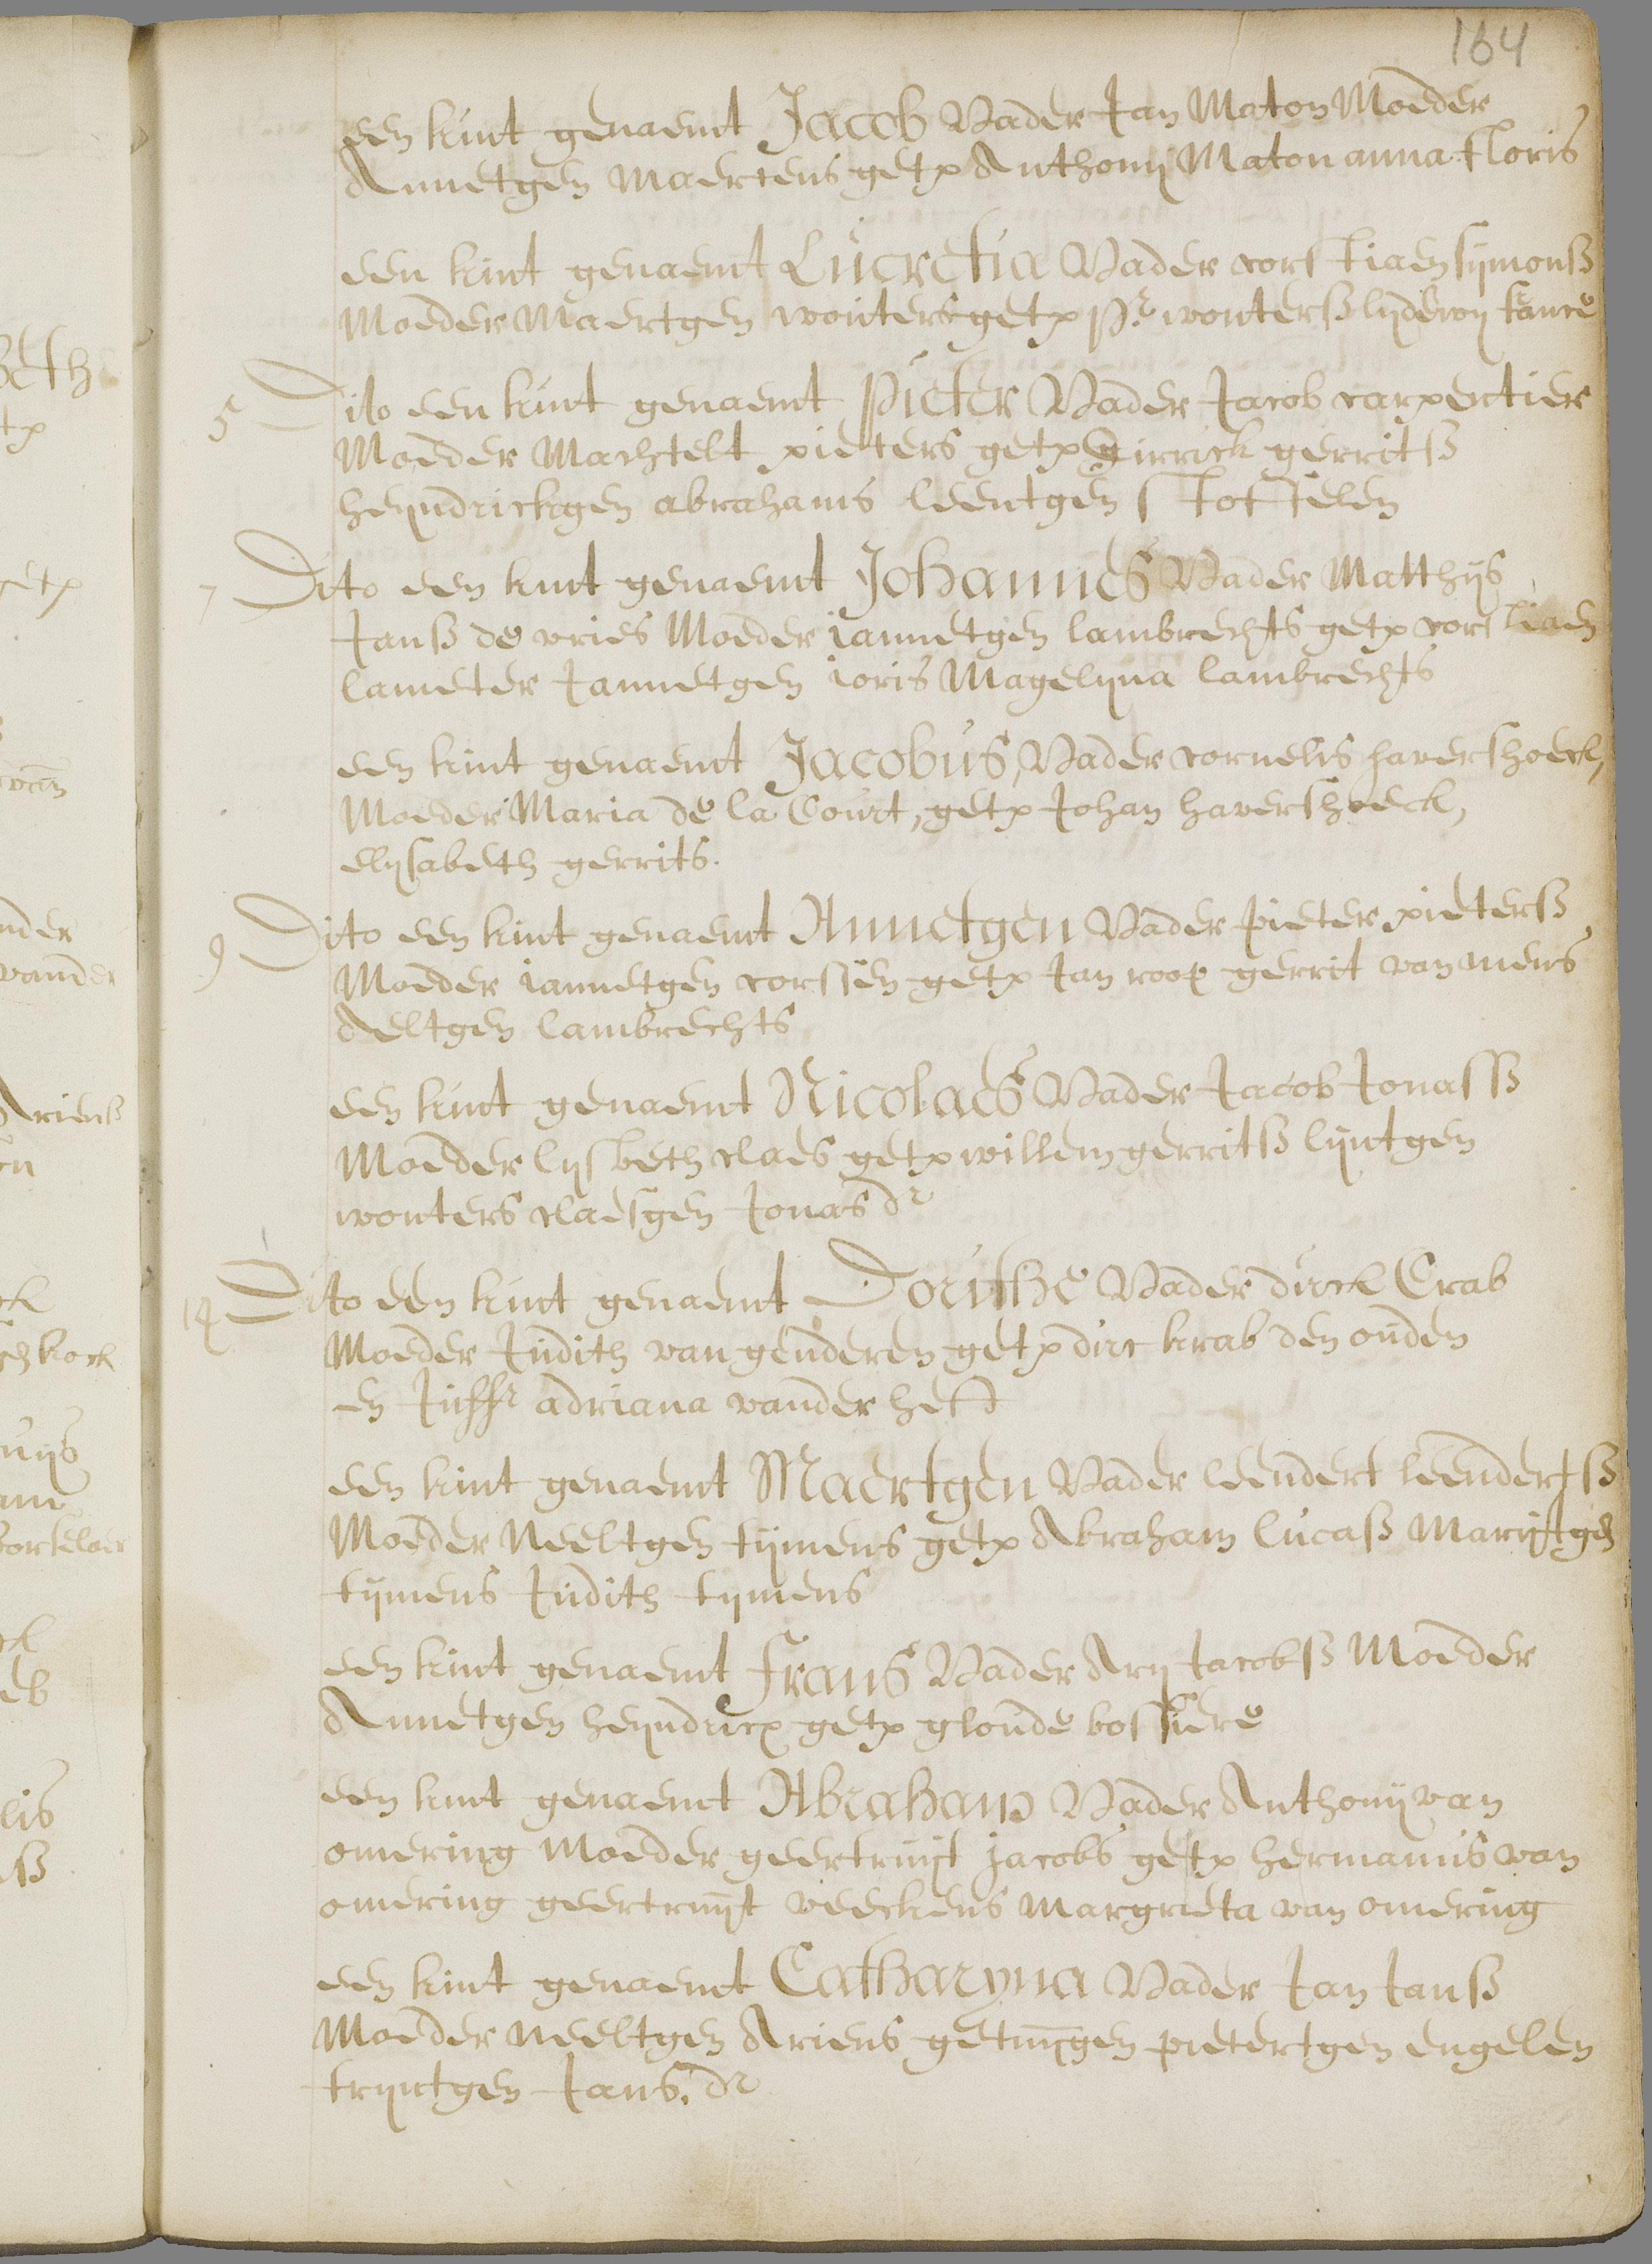 164
een kint genaemt Jacob Vader Jan Maton Moeder
Annetgen Maertens getx Anthonij Maton anna Floris
een kint genaemt Lucretia Vader corstiaen sijmonsz
Moeder Maertgen wouters getx Pr wouterss lijdewij
5 Dito een kint genaemt Pieter Vader Jacob carpentier
Moeder Machtelt pieters getx Dirrick gerritsz
heijndrickgen abrahams leentgen stoffelen
7 Dito een kint genaemt Johannes Vader Matthijs
Jansz de vries Moeder iannetgen lambrechts getx corstiaen
lameter Jannetgen ioris Magelijna lambrechts
een kint genaemt Jacobus, Vader cornelis havershoeck,
Moeder Maria de la Court, getx Johan havershoeck,
elijsabeth gerrits.
9 Dito een kint genaemt Annetgen Vader pieter pietersz
Moeder iannetgen corssen getx Jan roos gerrit van mens
Aeltgen lambrechts
een kint genaemt Nicolaes Vader Jacob Jonassz
Moeder lijsbeth claes getx willem gerritsz lijntgen
wouters claesgen Jonas dr
14 Dito een kint genaemt Doruthe Vader dirck Crab
Moeder Judith van genderen getx dirc krab den ouden
en Juffr adriana vander
een kint genaemt Maertgen Vader leendert leendertsz
Moeder Neeltgen tijmens getx Abraham lucasz Marijtgen
tijmens Judith tijmens
een kint genaemt Frans Vader Arij Jacobsz Moeder
Annetgen heijndricx getx gloude bossiere
een kint genaemt Abraham Vader Anthonij van
omering Moeder geertruijt jacobs getx hermanus van
omering geertruijt veeckens margrieta van omering
een kint genaemt Catharyna Vader Jan Jansz
Moeder Neeltgen Ariens getuijgen pietertgen engelen
trijntgen Jans. dr